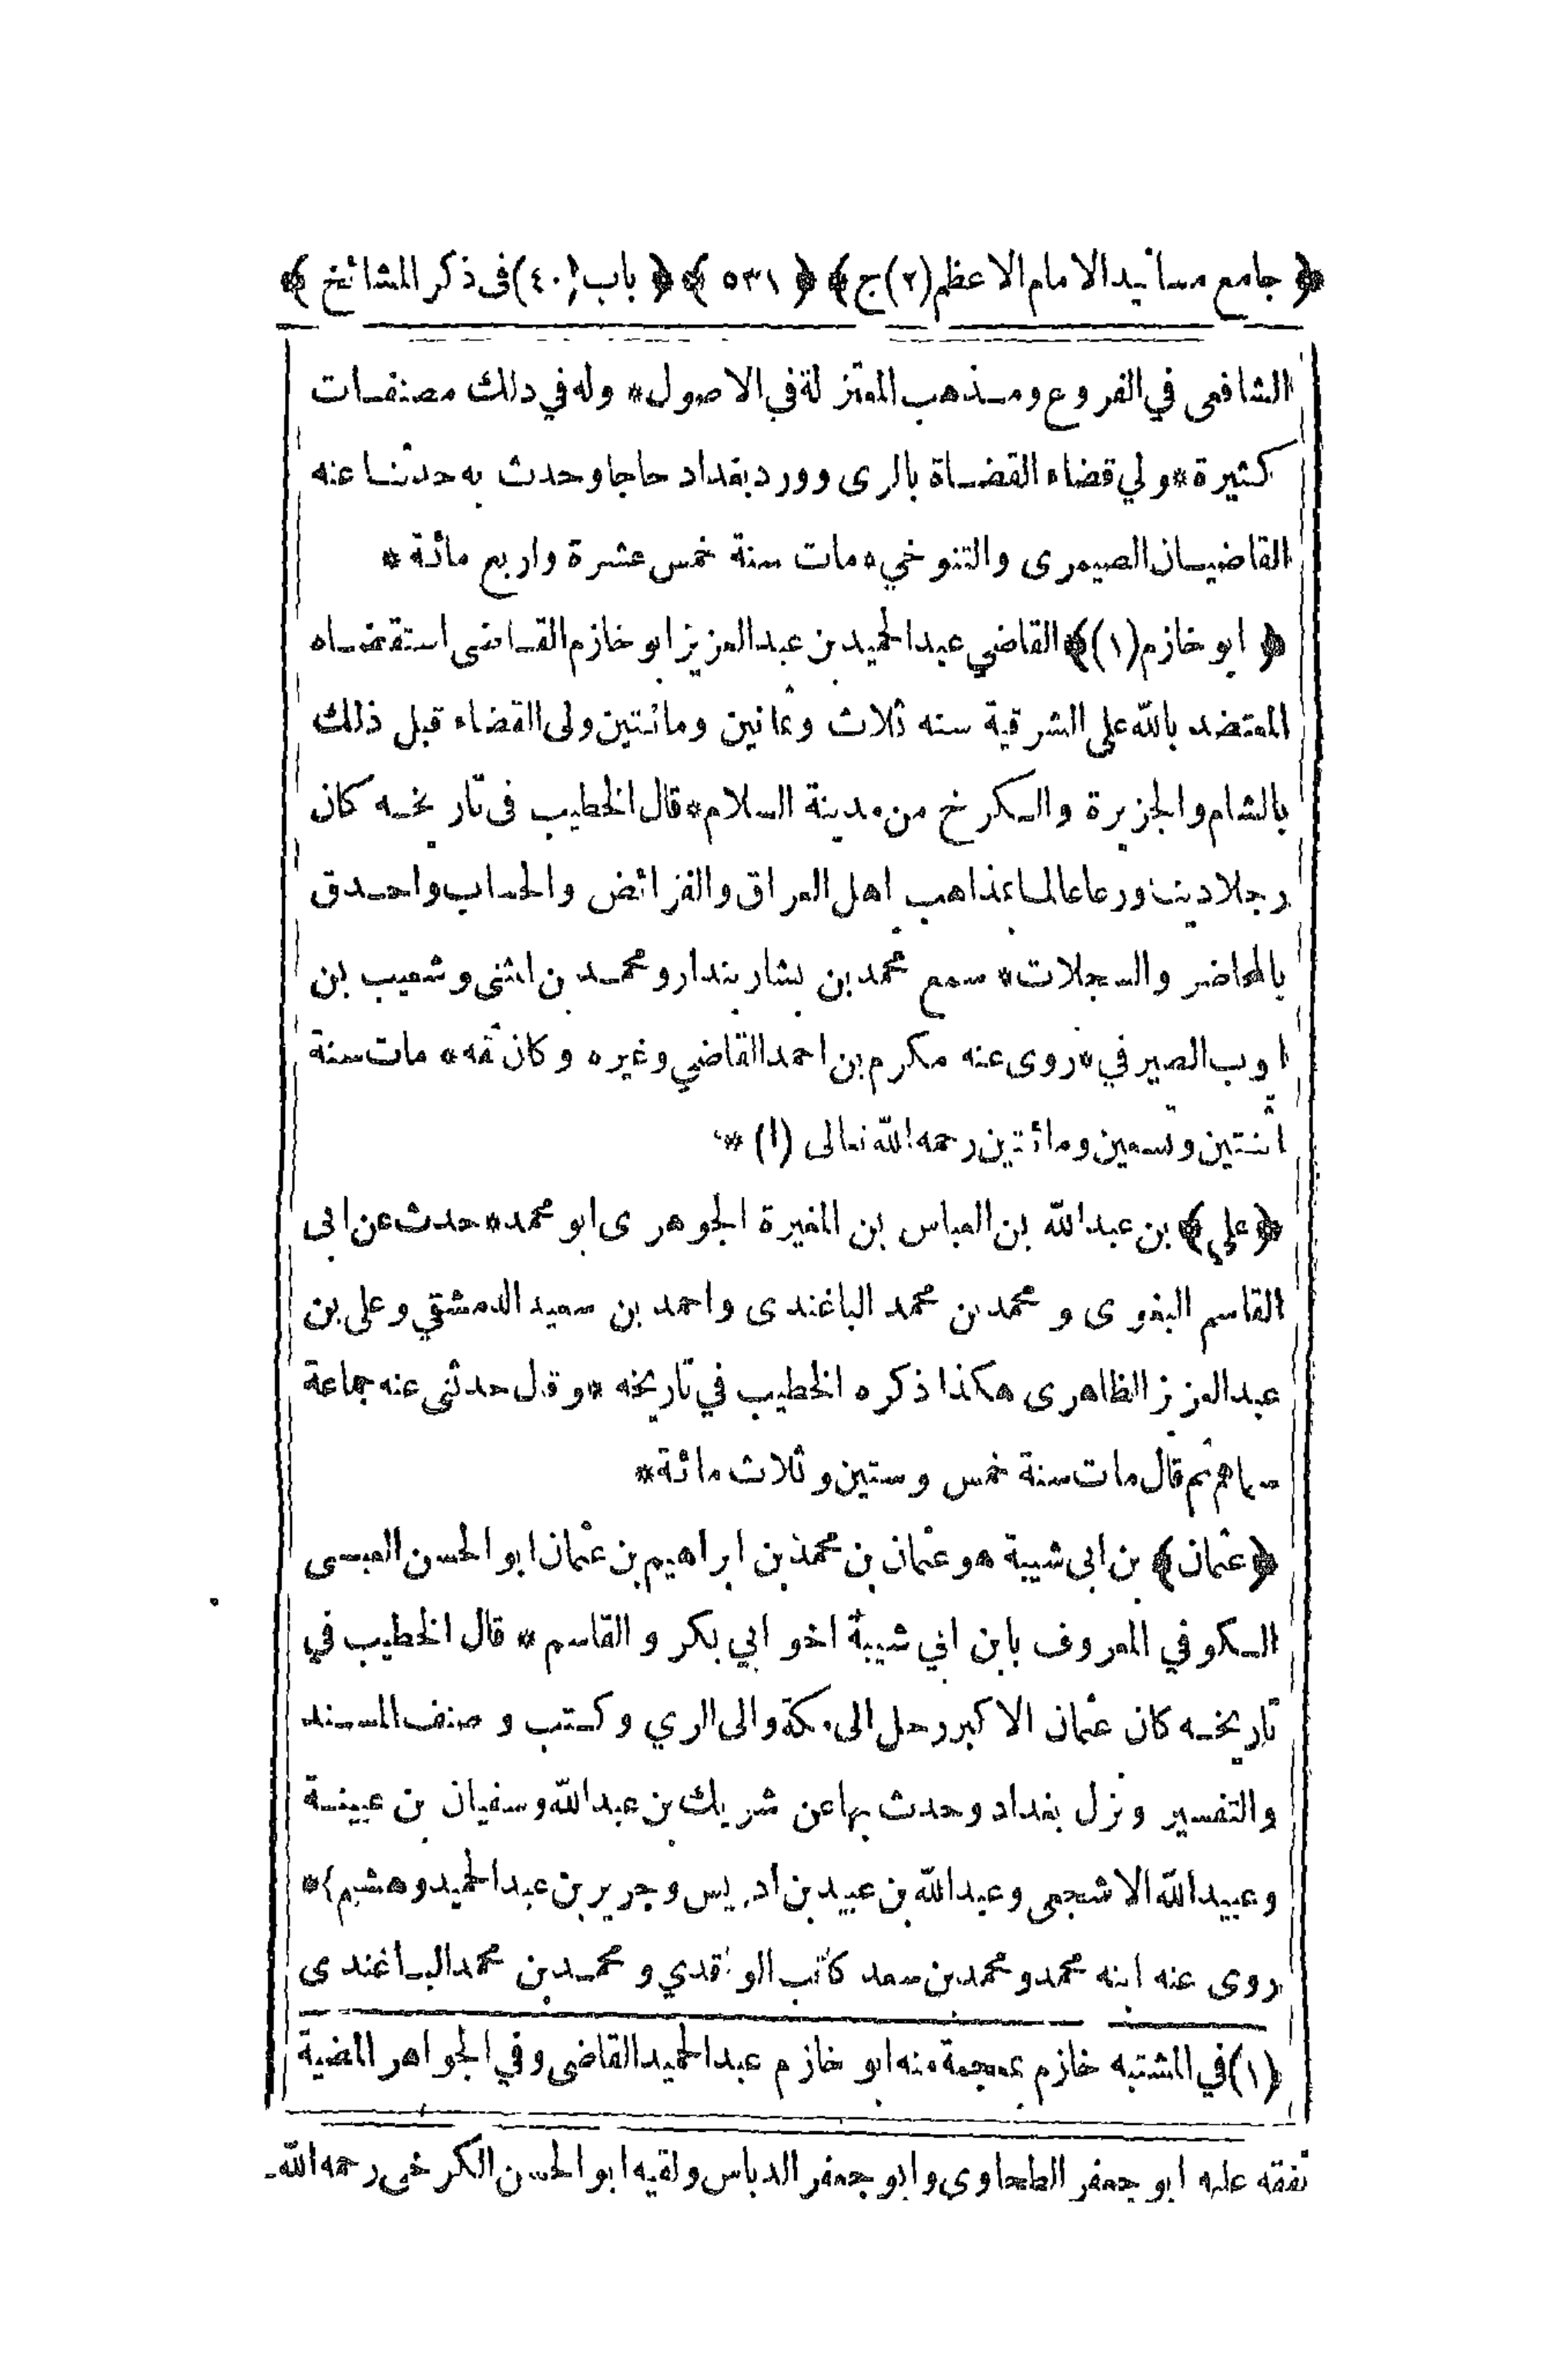 ﴿ جامع مسانيد الامام الاعظم (٢) ج ﴾ ﴿ ٥٣١ ﴾ ﴿ باب (٤٠) فى ذكر المشائخ ﴾
الشافعى في الفروع ومذهب المعتزلة في الاصول * وله في ذلك مصنفات
كثيرة * ولي قضاء القضاة بالرى وورد بغداد حاجا وحدث به حدثنا عنه
القاضيان الصيمرى والتنوخي * مات سنة خمس عشرة واربع مائة *
﴿ ابو خازم (١) ﴾ القاضي عبد الحميد بن عبد العزيز ابو خازم القاضى استقضاه
المعتضد بالله على الشرقية سنه ثلاث وثمانين ومائتين ولى القضاء قبل ذلك
بالشام والجزيرة والكرخ من مدينة السلام * قال الخطيب فى تاريخه كان
رجلا دينا ورعا عالما بمذاهب اهل العراق والفرائض والحساب واحدق
بالمحاضر والسجلات * سمع محمد بن بشار بندار ومحمد بن المثنى وشعيب بن
ايوب الصيرفي * روى عنه مكرم بن احمد القاضي وغيره وكان ثقه * مات سنة
اثنتين وتسعين ومائتين رحمه الله تعالى (١) *
﴿ علي ﴾ بن عبد الله بن العباس بن المغيرة الجوهرى ابو محمد * حدث عن ابى
القاسم البغوى و محمد بن محمد الباغندى واحمد بن سعيد الدمشقي وعلى بن
عبد العزيز الظاهرى هكذا ذكره الخطيب في تاريخه * وقال حدثنى عنه جماعة
سماهم ثم قال مات سنة خمس وستين وثلاث مائة *
﴿ عثمان ﴾ بن ابى شيبة هو عثمان بن محمد بن ابراهيم بن عثمان ابو الحسن العبسى
الكوفي المعروف بابن ابي شيبة اخو ابي بكر و القاسم * قال الخطيب في
تاريخه كان عثمان الاكبر رحل الى مكة والى الري وكتب و صنف المسند
والتفسير ونزل بغداد وحدث بها عن شريك بن عبد الله وسفيان بن عيينة
وعبيد الله الاشجعى وعبد الله بن عبيد بن ادريس وجرير بن عبد الحميد وهشيم} *
روى عنه ابنه محمد ومحمد بن سعد كاتب الواقدي و محمد بن محمد الباغندى
(١) في المشتبه خازم بمعجمة منه ابو خازم عبد الحميد القاضى وفي الجواهر المضية
تفقه عليه ابو جعفر الطحاوى وابو جعفر الدباس ولقيه ابو الحسن الكرخى رحمه الله-